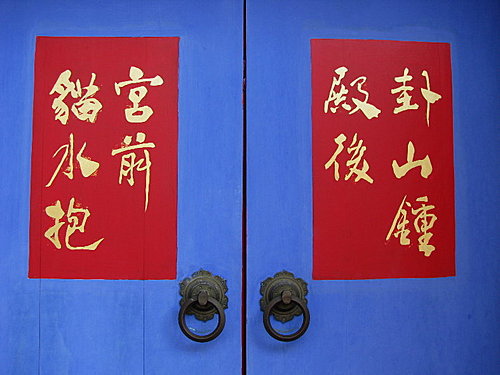 卦山鍾
殿後
宮前
貓水抱